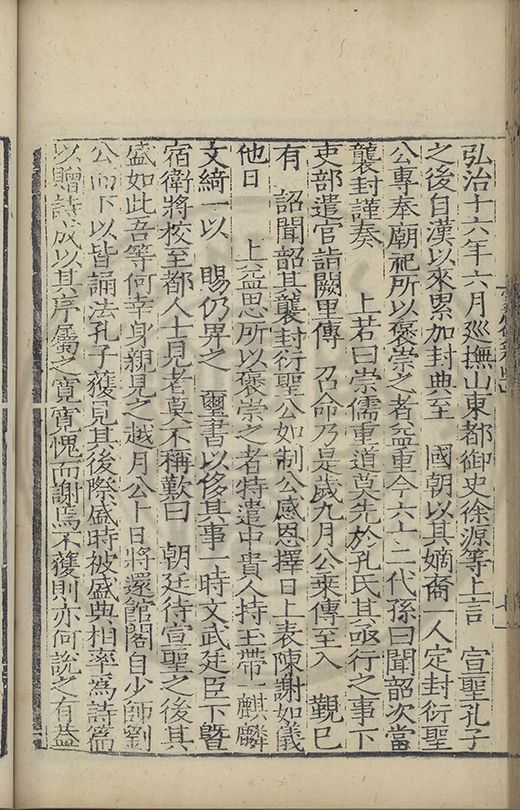 弘治十六年六月廵撫山東都御史徐源等上言　宣聖孔子
之後自漢以來累加封典至　國朝以其嫡裔一人定封衍聖
公專奉廟祀所以褒崇之者益重今六十二代孫曰聞韶次當
襲封謹奏　上若曰崇儒重道莫先於孔氏其亟行之事下
吏部遣官詣闕里傳　召命乃是歲九月公乘傳至入　覲已
有　詔聞韶其襲封衍聖公如制公感恩擇日上表陳謝如儀
他日　上益思所以褒崇之者特遣中貴人持玉帶一麒麟
文綺一以　賜仍畀之　璽書以侈其事一時文武廷臣下曁
宿衛將校至都人士見者莫不稱歎曰　朝廷待宣聖之後其
盛如此吾等何幸身親見之越月公卜日將還館閣自少師劉
公而下以皆誦法孔子獲見其後際盛時被盛典相率爲詩篇
以贈詩成以其序屬之寬寬愧而謝焉不獲則亦何說之有葢